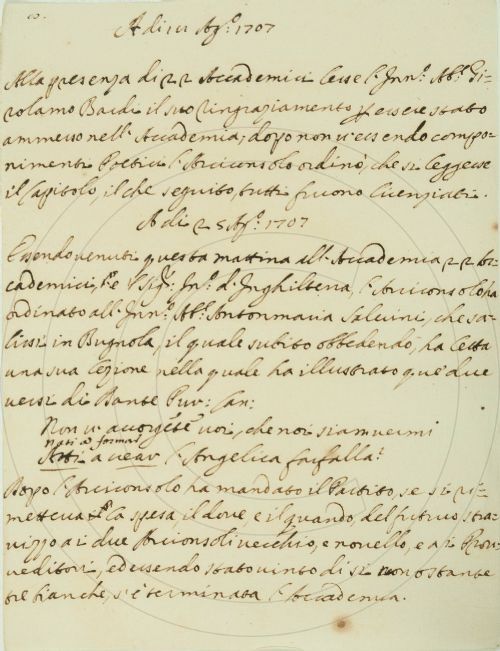 A di 11 Ag.º 1707
Alla presenza di 22 Accademici lesse l'Inn.º Ab.e Gi-
rolamo Bardi il suo ringraziamento p essere stato
ammesso nell'Accademia; dopo non v'essendo compo-
nimenti Poetici l'Arciconsolo ordinò, che si leggesse
il Capitolo, il che seguito, tutti furono licenziati.
A di 25 Ag.º 1707
Essendo venuti questa mattina all'Accademia 22 Ac-
cademici, e l'Sig.r In.º d'Inghilterra, l'Arciconsolo ha
ordinato all'Inn.º Ab.e Antonmaria Salvini, che sa-
lissi in Bugnola, il quale subito obbedendo, ha letta
una sua lezione nella quale ha illustrato que' due
versi di Dante Pur: Can:
Non v'accorgete voi, che noi siam vermi
nati a formar
Atti a l'Angelica farfalla?
Dopo l'Arciconsolo ha mandato il Partito, se si ri-
metteva la spesa, il dove, e il quando del futuro stra-
vizzo ai due Arciconsoli vecchio, e novello, e a i Prov-
veditori, ed essendo stato vinto di sì non ostante
tre bianche, s'è terminata l'Accademia.